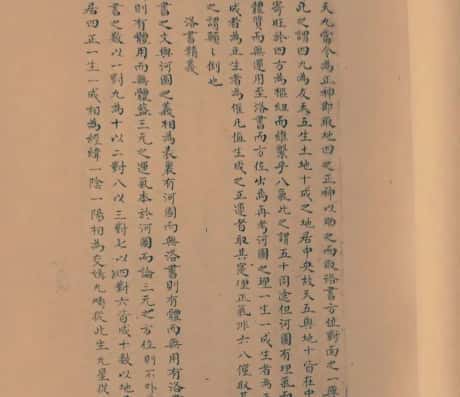 天九當令為正神即取地四之正神以助之而取洛書方位對面之一
此之謂四九為友天五生土地十成之地居中央故天五與地十皆在中
寄旺於四方為樞紐而維繫乎八氣此之謂五十同途但河圖有理氣而
體質而無運用至洛書而方位出焉再考河圖之理一生一成生者為
成者為正生者為催凡值生成之正運者取其寔理正氣非六八催取其
之謂顛之倒也
洛書精義
書之文與河圖之義相為表裏有河圖而無洛書則有體而無用有洛
則有體用而無體蓋三元之運氣本於河圖而論三元之方位則不外
書之數以一對九為十以二對八以三對七以四對六皆成十數以地
居四正一生一成相為經緯一陰一陽相為交媾九疇從此生九星從